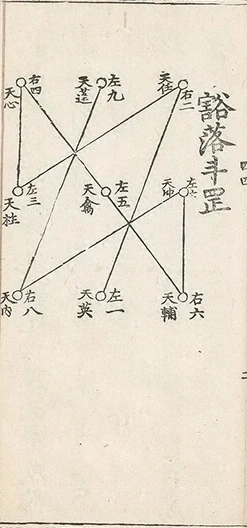 豁落斗罡
右二
天任
左九
天蓬
右四
天心
左七
左五
天禽
左三
天柱
右六
天輔
左一
天英
右八
天内